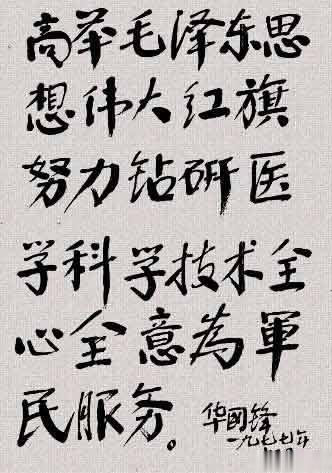 高举毛泽东思
想伟大红旗
努力钻研医
学科学技术全
心全意为軍
民服务。
华國锋
一九七七年